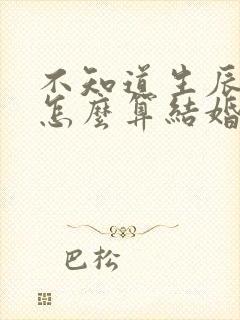 不知道生辰
怎麼算結婚
巴松